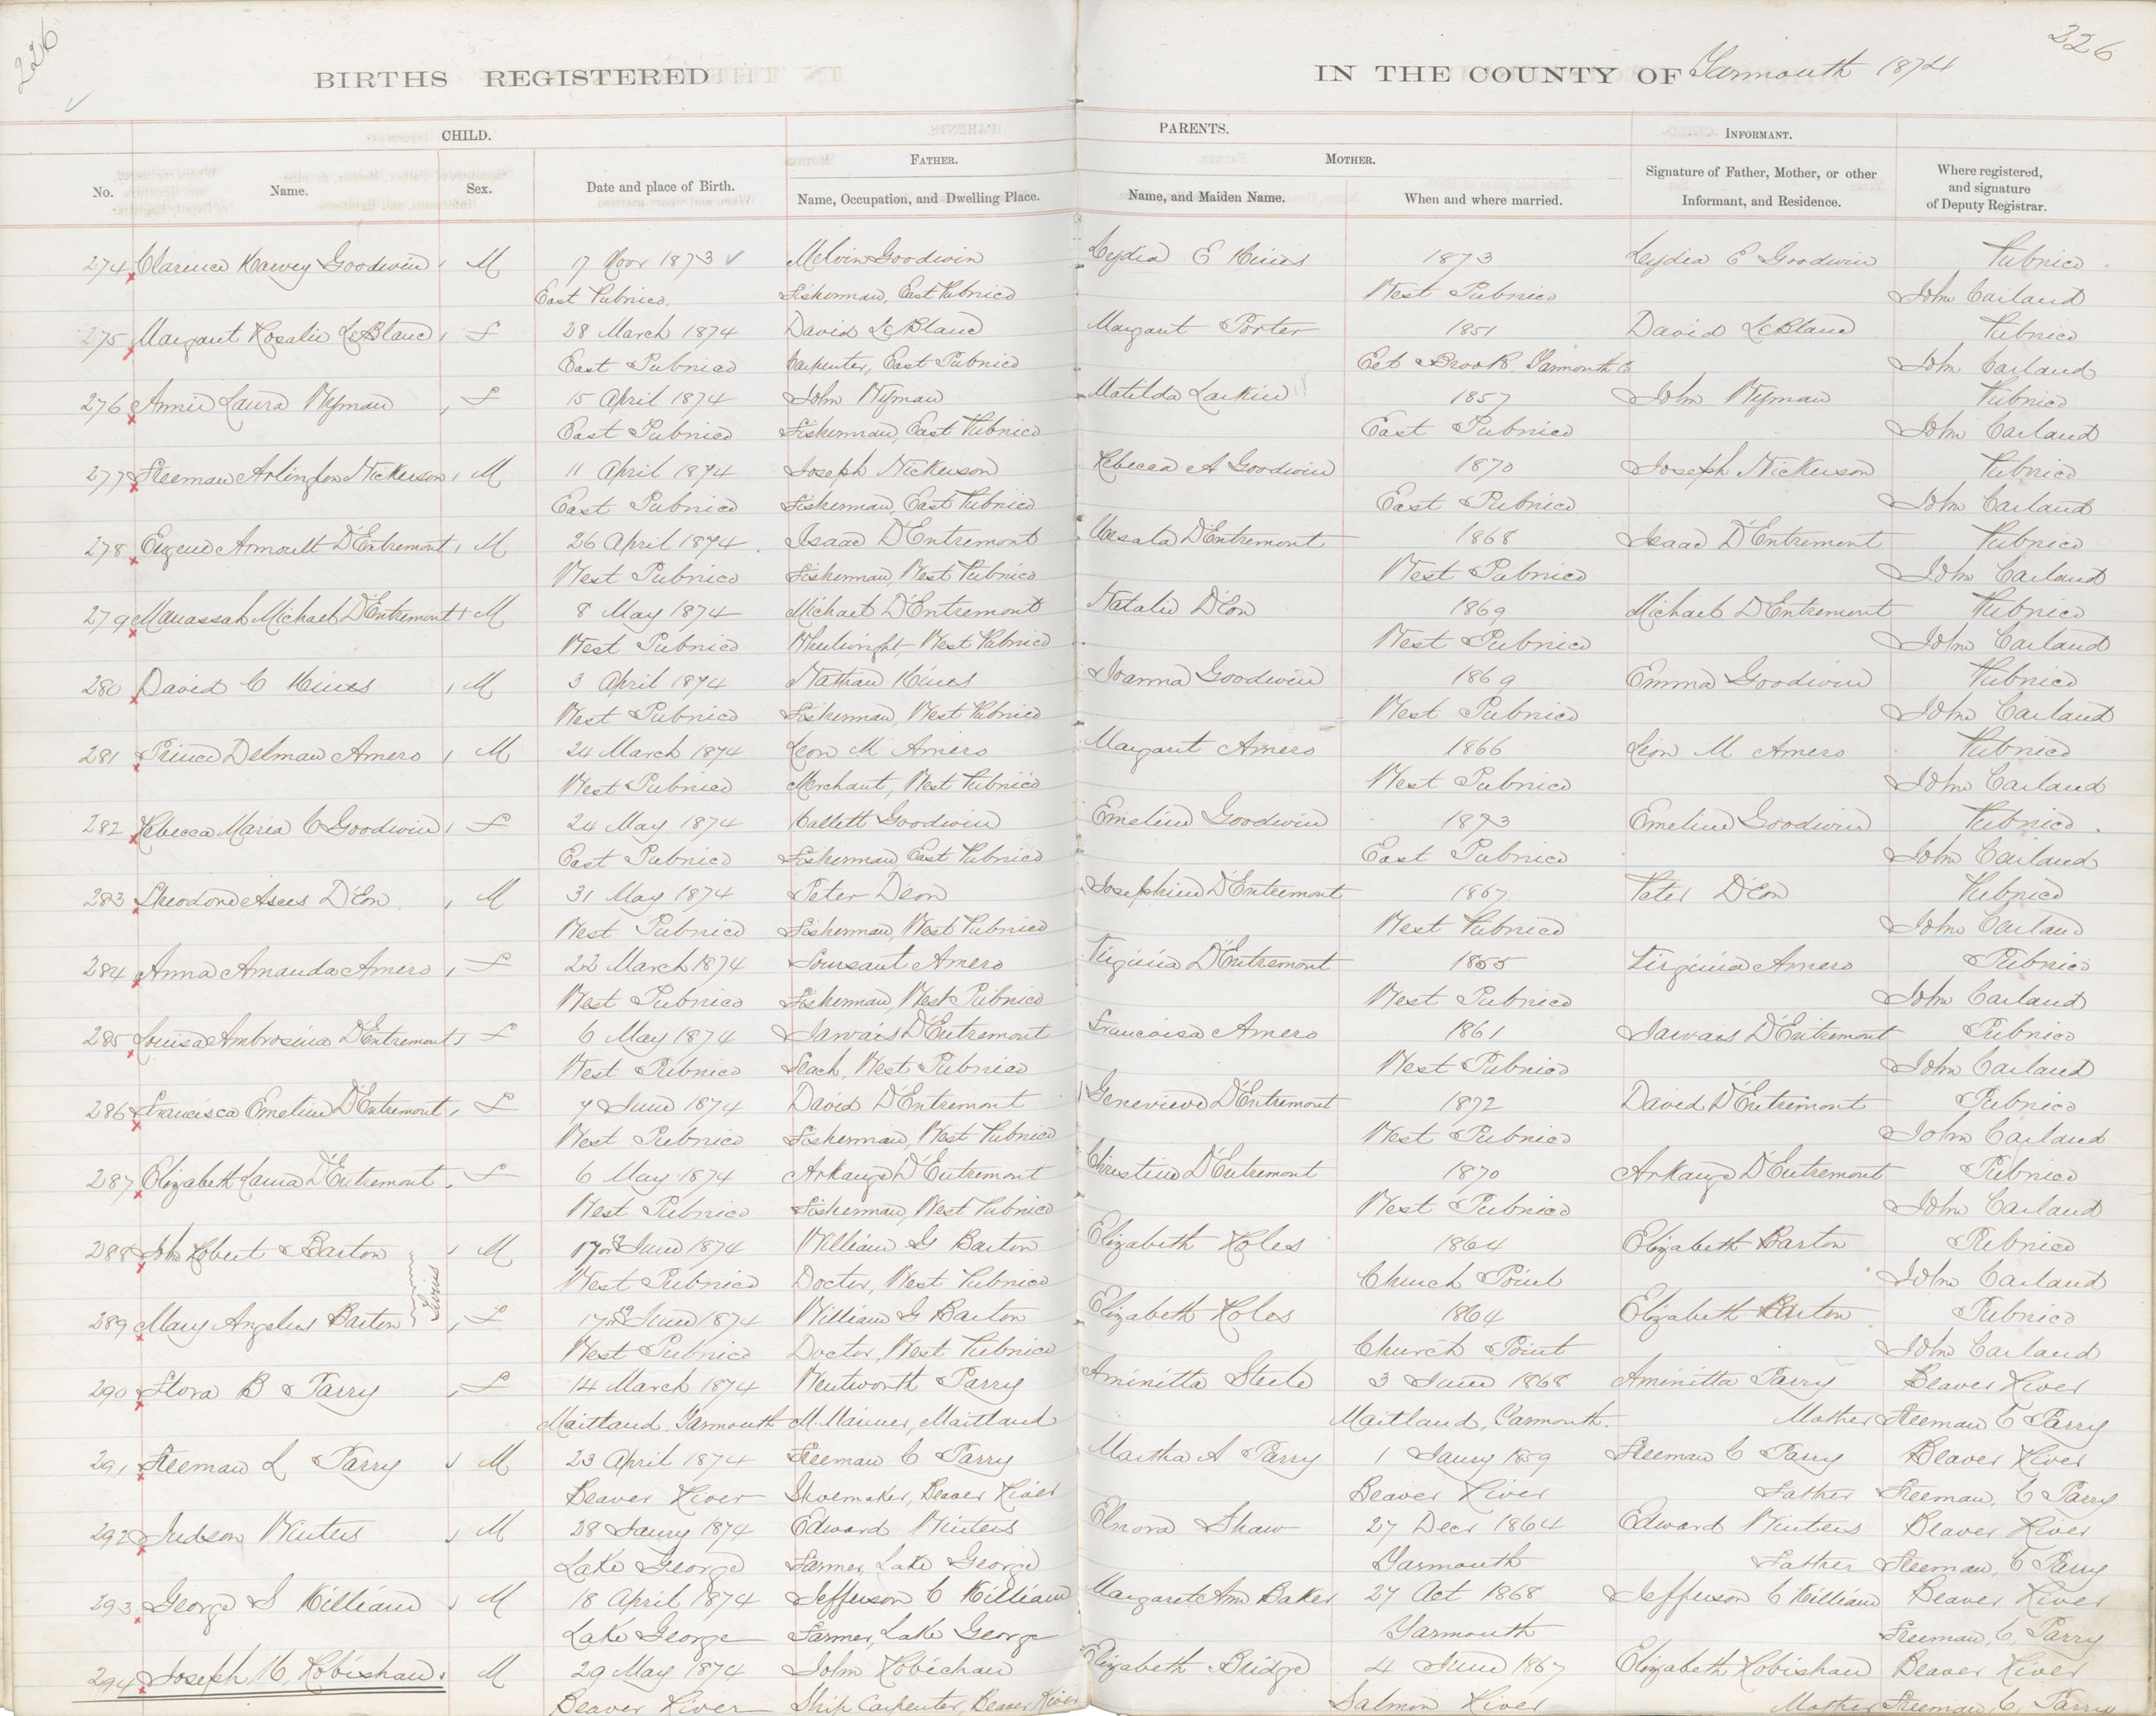 226
326
BIRTHS REGISTERED
IN THE COUNTY OF Yarmouth 1874
CHILD.
PARENTS.
INFORMANT.
FATHER.
MOTHER.
No. Name. Sex. Date and place of Birth. Name, Occupation, and Dwelling Place. Name, and Maiden Name. When and where married. Signature of Father, Mother, or other Informant, and Residence. Where registered, and signature of Deputy Registrar.
274 Clarence Harvey Goodwin M 17 Novr 1873 Melvin Goodwin Lydia E Hines 1873 Lydia E Goodwin Pubnico
East Pubnico Fisherman, East Pubnico West Pubnico John Carland
275 Margaret Rosalie LeBlanc F 28 March 1874 David LeBlanc Margaret Porter 1851 David LeBlanc Pubnico
East Pubnico Carpenter, East Pubnico Eel Brook, Yarmouth Co John Carland
276 Annie Laura Wyman F 15 April 1874 John Wyman Matilda Larkin 1857 John Wyman Pubnico
East Pubnico Fisherman, East Pubnico East Pubnico John Carland
277 Freeman Arlington Nickerson M 11 April 1874 Joseph Nickerson Rebecca A Goodwin 1870 Joseph Nickerson Pubnico
East Pubnico Fisherman, East Pubnico East Pubnico John Carland
278 Eugene Arnoult D'Entremont M 26 April 1874 Isaac D'Entremont D'Entremont 1868 Isaac D'Entremont Pubnico
West Pubnico Fisherman, West Pubnico West Pubnico John Carland
279 Manassah Michael D'Entremont M 8 May 1874 Michael D'Entremont Natalie D'Eon 1869 Michael D'Entremont Pubnico
West Pubnico Wheelwright, West Pubnico West Pubnico John Carland
280 David C Hines M 3 April 1874 Nathan Hines Joanna Goodwin 1869 Emma Goodwin Pubnico
West Pubnico Fisherman, West Pubnico West Pubnico John Carland
281 Prince Delman Amero M 24 March 1874 Leon M Amero Margaret Amero 1866 Leon M Amero Pubnico
West Pubnico Merchant, West Pubnico West Pubnico John Carland
282 Rebecca Maria C Goodwin F 24 May 1874 Hallett Goodwin Emeline Goodwin 1873 Emeline Goodwin Pubnico
East Pubnico Fisherman East Pubnico East Pubnico John Carland
283 Theodore D'Eon M 31 May 1874 Peter D'eon Josephine D'Entremont 1867 Peter D'Eon Pubnico
West Pubnico Fisherman, West Pubnico West Pubnico John Carland
284 Anna Amanda Amero F 22 March 1874 Amero Virginia D'Entremont 1855 Virginia Amero Pubnico
West Pubnico Fisherman, West Pubnico West Pubnico John Carland
285 Louisa Ambrosina D'Entremont F 6 May 1874 Jarvais D'Entremont Francoise Amero 1861 Jarvais D'Entremont Pubnico
West Pubnico West Pubnico West Pubnico John Carland
286 Francisca Emeline D'Entremont F 7 June 1874 David D'Entremont Genevieve D'Entremont 1872 David D'Entremont Pubnico
West Pubnico Fisherman, West Pubnico West Pubnico John Carland
287 Elizabeth Laura D'Entremont F 6 May 1874 Arkange D'Entremont Christine D'Entremont 1870 Arkange D'Entremont Pubnico
West Pubnico Fisherman, West Pubnico West Pubnico John Carland
288 John Robert Barton M 17 June 1874 William G Barton Elizabeth Holes 1864 Elizabeth Barton Pubnico
Twins
West Pubnico Doctor, West Pubnico Church Point John Carland
289 Mary Angeles Barton F 17 June 1874 William G Barton Elizabeth Holes 1864 Elizabeth Barton Pubnico
West Pubnico Doctor, West Pubnico Church Point John Carland
290 Flora B Parry F 14 March 1874 Wentworth Parry Aminitta Steele 3 June 1868 Aminitta Parry Beaver River
Maitland, Yarmouth M. Mariner, Maitland Maitland, Yarmouth. Mother Freeman C Parry
291 Freeman L Parry M 23 April 1874 Freeman C Parry Martha A Parry 1 Jany 1859 Freeman C Parry Beaver River
Beaver River Shoemaker, Beaver River Beaver River Father Freeman, C Parry
292 Judson Winters M 28 Jany 1874 Edward Winters Elnora Shaw 27 Decr 1864 Edward Winters Beaver River
Lake George Farmer, Lake George Yarmouth Father Freeman, C Parry
293 George S Killiam M 18 April 1874 Jefferson C Killiam Margaret Ann Baker 27 Oct 1868 Jefferson C Killiam Beaver River
Lake George Farmer, Lake George Yarmouth Freeman, C, Parry
294 Joseph H, Robishau M 29 May 1874 John Robichau Elizabeth Bridge 4 June 1867 Elizabeth Robishau Beaver River
Beaver River Ship Carpenter, Beaver River Salmon River Mother Freeman, C, Parry